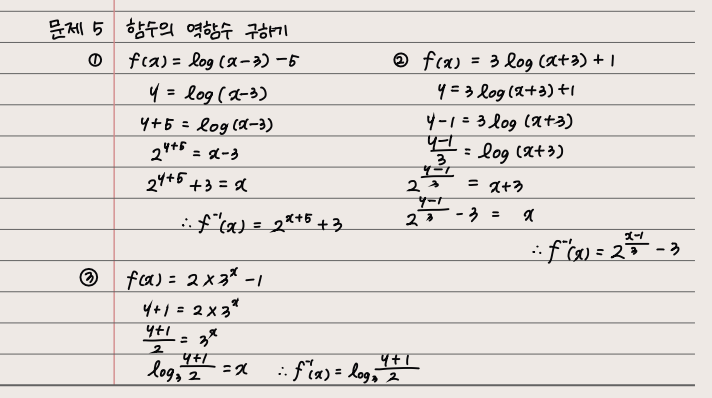 문제 5 함수의 역함수 구하기
① f(x) = log(x-3) -5
y = log(x-3)
y+5 = log(x-3)
2^{y+5} = x-3
2^{y+5} +3 = x
∴ f^{-1}(x) = 2^{x+5} +3
② f(x) = 3 log(x+3) + 1
y = 3 log(x+3) +1
y-1 = 3 log (x+3)
\frac{y-1}{3} = log (x+3)
2^{\frac{y-1}{3}} = x+3
2^{\frac{y-1}{3}} - 3 = x
∴ f^{-1}(x) = 2^{\frac{x-1}{3}} - 3
③ f(x) = 2 × 3^x -1
y+1 = 2 × 3^x
\frac{y+1}{2} = 3^x
log_3 \frac{y+1}{2} = x ∴ f^{-1}(x) = log_3 \frac{y+1}{2}